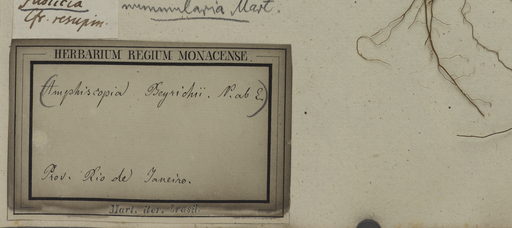 Justicia
cfr. resupin.
nummularia Mart.
HERBARIUM REGIUM MONACENSE.
(Amphiscopia Beyrichii. N. ab E.)
Prov. Rio de Janeiro.
Mart. iter. brasil.